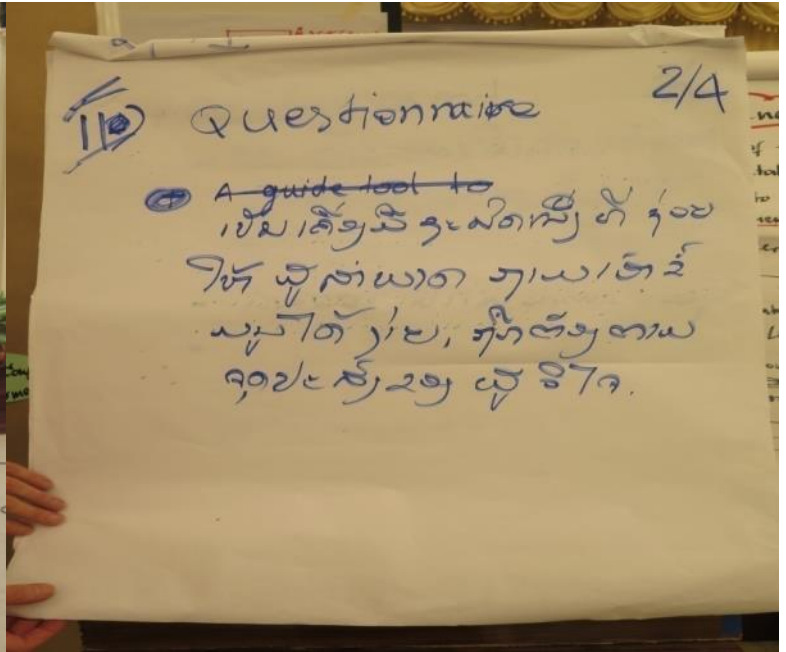 11 Questionnaire 2/4
A guide tool to
ເປັນເຄື່ອງມື ຊະນິດໜຶ່ງ ທີ່ ຊ່ວຍ
ໃຫ້ ຜູ້ສຳພາດ ຖາມເອົາຂໍ້
ມູນໄດ້ ງ່າຍ, ຖືກຕ້ອງຕາມ
ຈຸດປະສົງຂອງ ຜູ້ວິໄຈ.